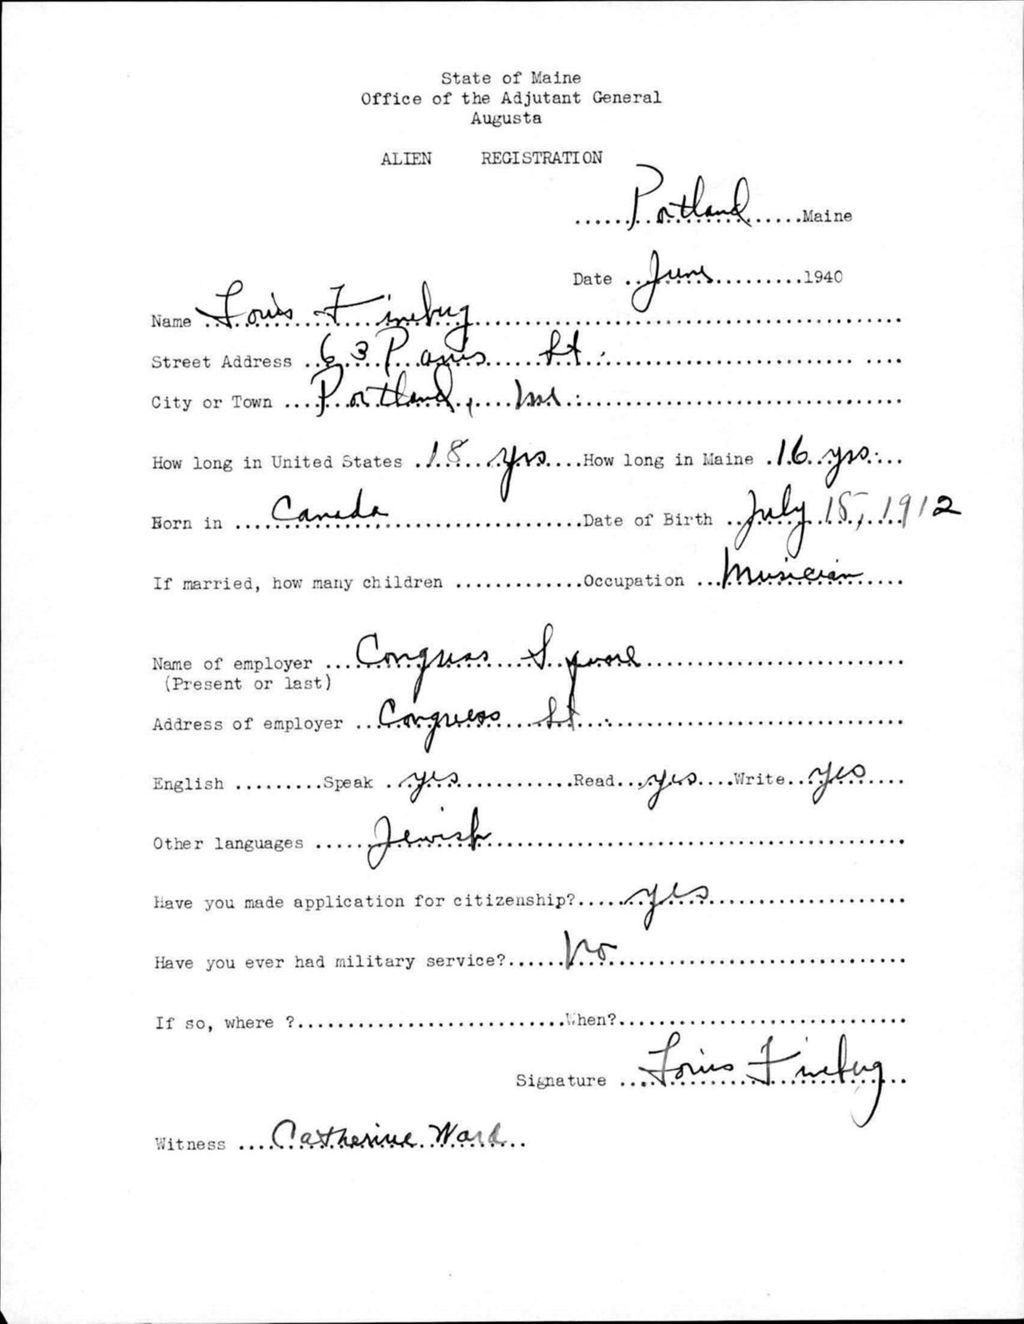 State of Maine
Office of the Adjutant General
Augusta
ALIEN REGISTRATION
......Portland......Maine
Date ..June..........1940
Name ..Louis Fineburg..........
Street Address ..63 Paris St...........
City or Town ....Portland, Me...........
How long in United States .18 yrs....How long in Maine .16 yrs....
Born in ....Canada..........Date of Birth ..July 15, 1912
If married, how many children .............Occupation ...Musician.....
Name of employer ...Congress Square..........
(Present or last)
Address of employer ..Congress St...........
English .........Speak .yes...........Read...yes....Write..yes....
Other languages .....Jewish..........
Have you made application for citizenship?.....yes..........
Have you ever had military service?......No..........
If so, where ?..........................When?..........................
Signature ....Louis Fineburg..
Witness ....Catherine Ward..